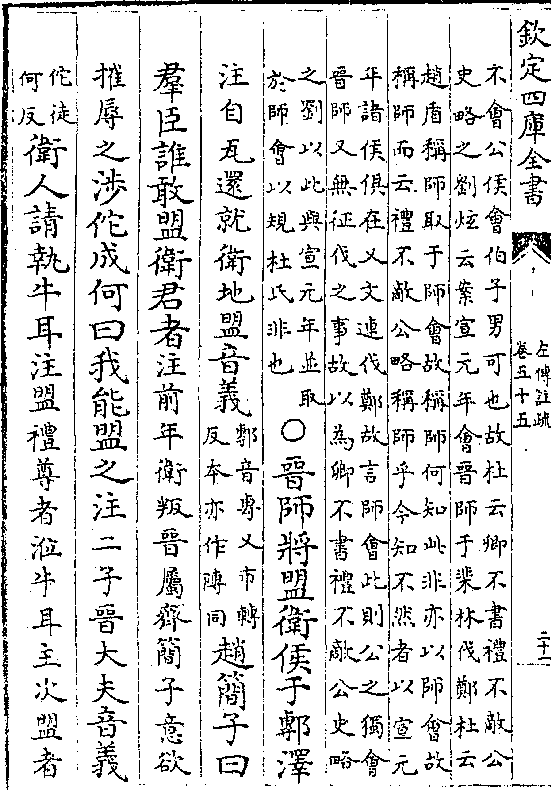 欽定四庫全書
左傳註疏
卷五十五
二十一
不會公侯會伯子男可也故杜云卿不書禮不敵公
史略之劉炫云案宣元年會晉師于棐林伐鄭杜云
趙盾稱師取于師會故稱師何知此非亦以師會故
稱師而云禮不敵公略稱師乎今知不然者以宣元
年諸侯俱在又文連伐鄭故言師會此則公之獨會
晉師又無征伐之事故以為卿不書禮不敵公史略
之劉以此與宣元年並取
於師會以規杜氏非也
○晉師將盟衛侯于鄟澤
注自瓦還就衛地盟音義
鄟音專又市轉
反本亦作𫑘同
趙簡子曰
羣臣誰敢盟衛君者注前年衛叛晉屬齊簡子意欲
摧辱之涉佗成何曰我能盟之注二子晉大夫音義
佗徒
何反
衛人請執牛耳注盟禮尊者涖牛耳主次盟者